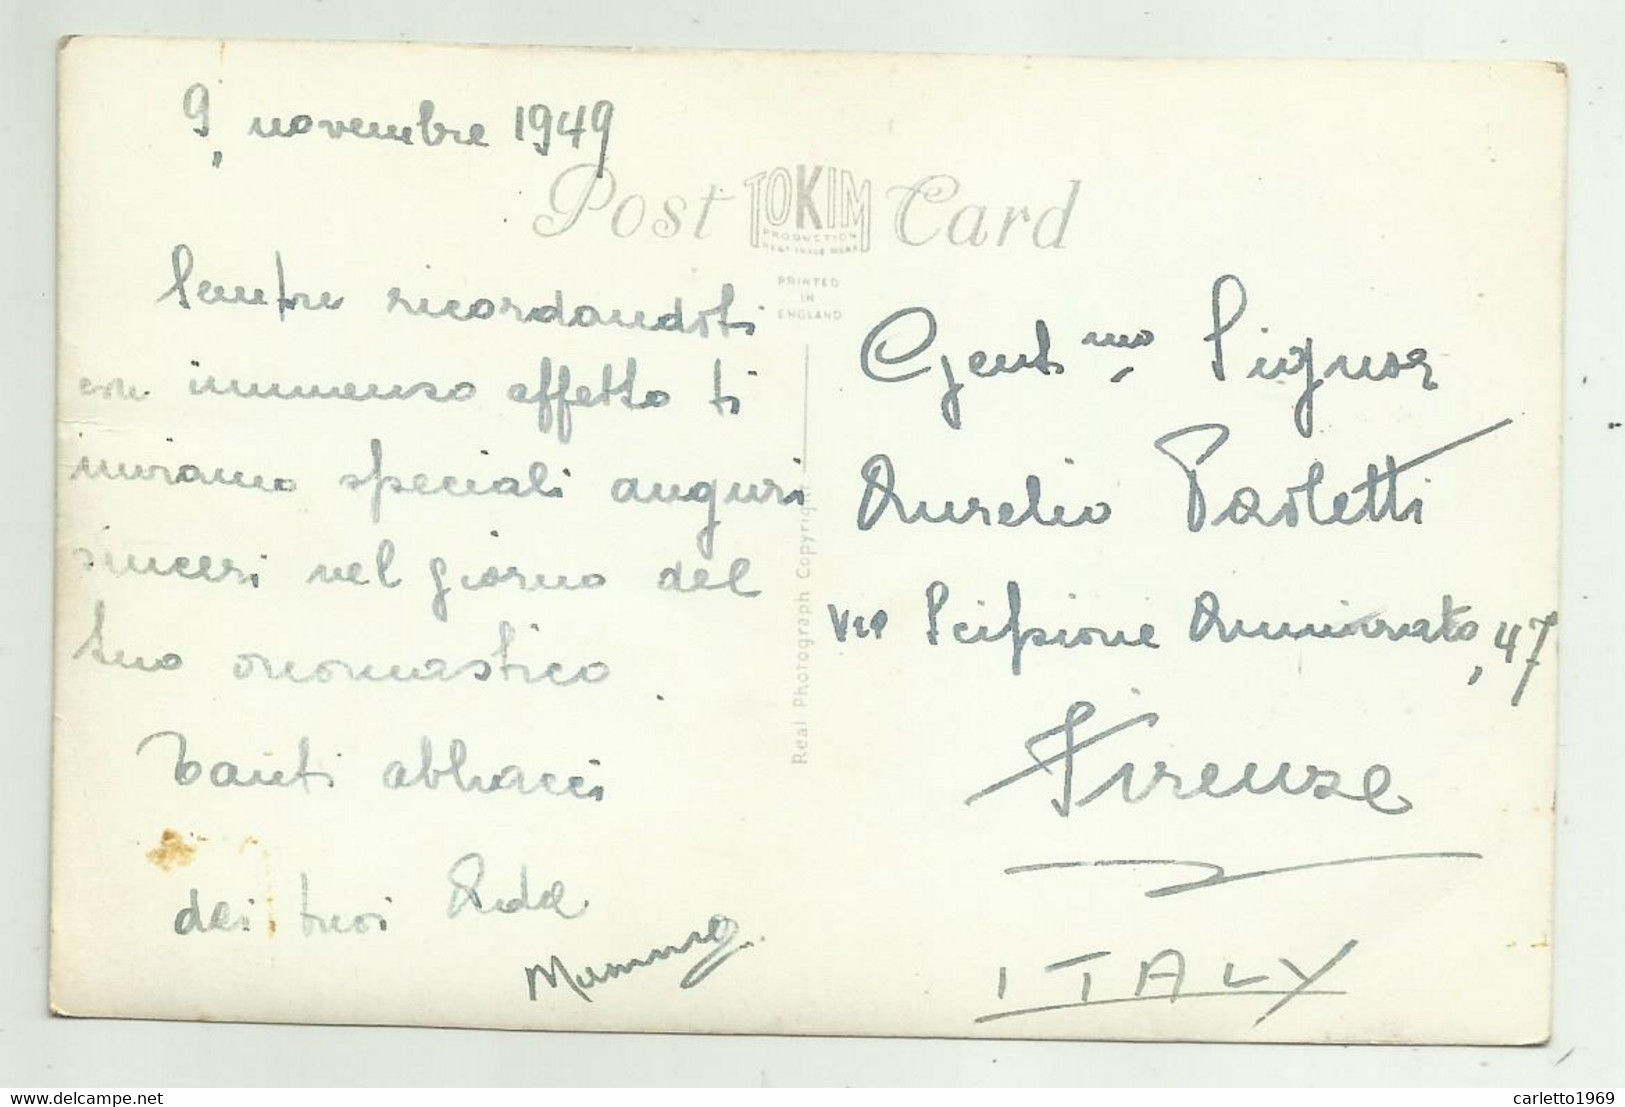 9, novembre 1949
Post TOKIM Card
PRODUCTION
PRINTED
IN
ENGLAND
Sempre ricordandoti
con immenso affetto ti
inviamo speciali auguri
sinceri nel giorno del
tuo onomastico.
Tanti abbracci
dei tuoi Aida
Real Photograph Copyright
Gent.mo Signor
Aurelio Paoletti
via Scipione Ammirato, 47
Firenze
ITALY
carletto1969